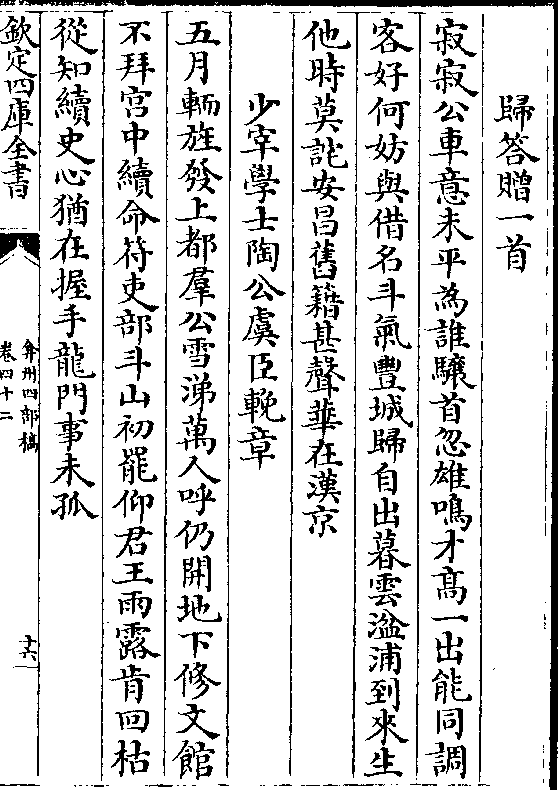 歸答贈一首
寂寂公車意未平為誰驤首忽雄鳴才髙一出能同調
客好何妨與借名斗氣豐城歸自出暮雲湓浦到來生
他時莫詑安昌舊籍甚聲華在漢京
少宰學士陶公虞臣輓章
五月輀旌發上都羣公雪涕萬人呼仍開地下修文館
不拜宫中續命符吏部斗山初罷仰君王雨露肯回枯
從知續史心猶在握手龍門事未孤
欽定四庫全書
弇州四部稿
卷四十二
十六